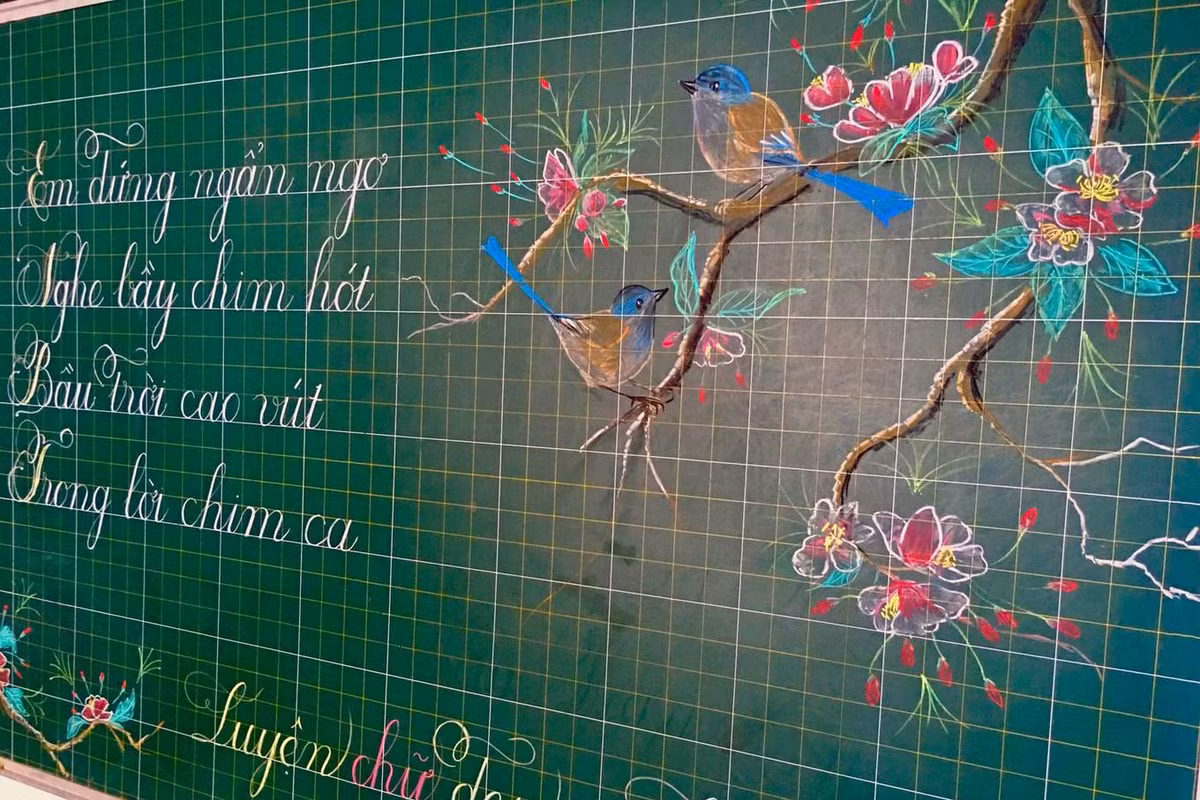 Em đứng ngẩn ngơ
Nghe bầy chim hót
Bầu trời cao vút
Trong lời chim ca
Luyện chữ